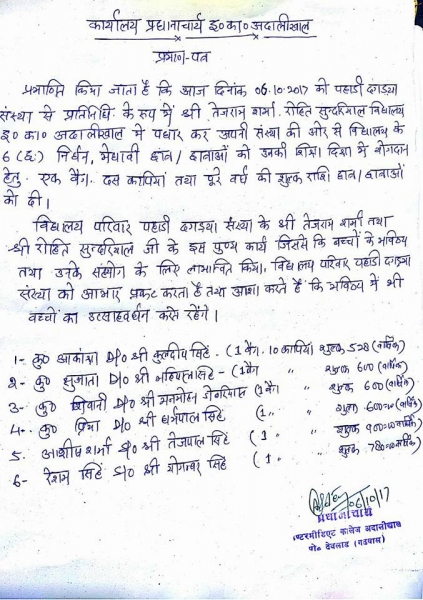 कार्यालय प्रधानाचार्य इ०का० अदालीखाल
प्रमाण-पत्र
प्रमाणित किया जाता है कि आज दिनांक 06.10.2017 को पहाडी दगड्या
संस्था से प्रतिनिधि के रूप में श्री तेजराम शर्मा, रोहित सुन्दरियाल विद्यालय
इ०का० अदालीखाल में पधार कर अपनी संस्था की ओर से विद्यालय के
6 (छः) निर्धन, मेधावी छात्र/छात्राओं को उनकी शिक्षा दिशा में योगदान
हेतु एक बैग, दस कापियां तथा पूरे वर्ष की शुल्क राशि छात्र/छात्राओं
को दी।
विद्यालय परिवार पहाडी दगड्या संस्था के श्री तेजराम शर्मा तथा
श्री रोहित सुन्दरियाल जी के इस पुण्य कार्य जिससे कि बच्चों के भविष्य
तथा उनके सहयोग के लिए लाभान्वित किया, विद्यालय परिवार पहाडी दगड्या
संस्था को आभार प्रकट करता है तथा आशा करते हैं कि भविष्य में भी
बच्चों का उत्साहवर्धन करते रहेंगे।
1- कु० आकांक्षा D/o श्री कुलदीप सिंह - (1 बैग, 10 कापियां) शुल्क 528 (वार्षिक)
2- कु० सुजाता D/o श्री महिपाल सिंह - (1 बैग " शुल्क 600 (वार्षिक)
3- कु० शिवानी D/o श्री मनमोहन (1 बैग " शुल्क 600 (वार्षिक)
4- कु० प्रिया D/o श्री धर्मपाल सिंह (1 " " शुल्क 600=00 (वार्षिक)
5. आशीष शर्मा S/o श्री तेजपाल सिंह (1 " " शुल्क 900=00 (वार्षिक)
6- रेशम सिंह S/o श्री योगम्बर सिंह (1 " " शुल्क 780=00 (वार्षिक)
06/10/17
प्रधानाचार्य
इण्टरमीडिएट कालेज अदालीखाल
पो० देवलाड (गढ़वाल)